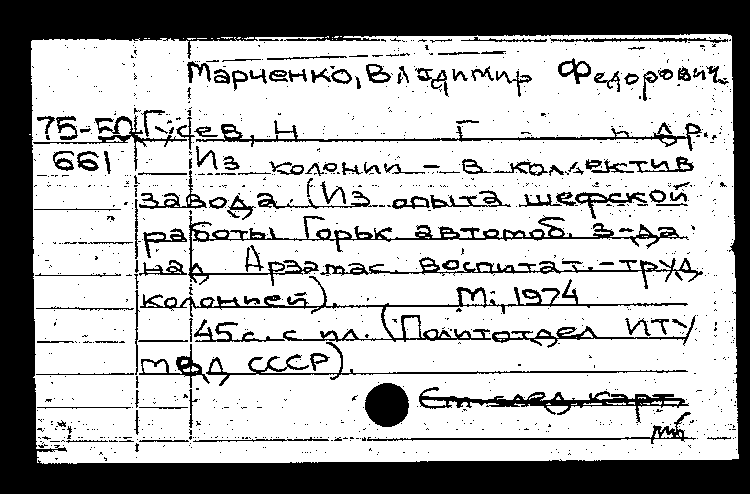 Марченко, Владимир Федорович.
75-50 Гусев, Н Г и др.
661 Из колонии – в коллектив
завода. (Из опыта шефской
работы Горьк автомоб. з-да
над Арзамас. воспитат.-труд
колонией). М., 1974
45с. с ил. (Политотдел ИТУ
МВД СССР).
См. след. карт.